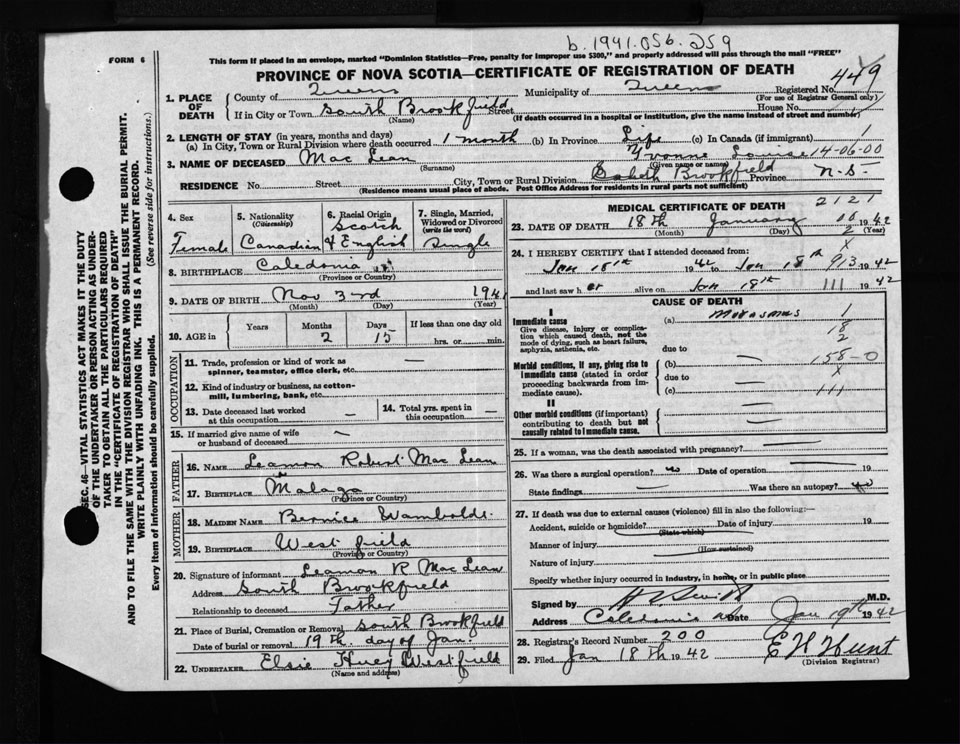 b. 1941.056.259
FORM 6
This form if placed in an envelope, marked "Dominion Statistics—Free, penalty for improper use $300," and properly addressed will pass through the mail "FREE"
PROVINCE OF NOVA SCOTIA—CERTIFICATE OF REGISTRATION OF DEATH
1. PLACE OF DEATH
County of Queens Municipality of Queens Registered No. 449
(For use of Registrar General only)
If in City or Town South Brookfield Street House No.
(Name) (If death occurred in a hospital or institution, give the name instead of street and number)
2. LENGTH OF STAY (in years, months and days)
(a) In City, Town or Rural Division where death occurred 1 month (b) In Province Life (c) In Canada (if immigrant) 1
3. NAME OF DECEASED Mac Lean Yvonne Louise 14-06-00
(Surname) (Given name or names)
RESIDENCE No. Street City, Town or Rural Division South Brookfield Province N-S-
(Residence means usual place of abode. Post Office Address for residents in rural parts not sufficient)
4. Sex
Female
5. Nationality (Citizenship)
Canadian
6. Racial Origin
Scotch & English
7. Single, Married, Widowed or Divorced (write the word)
Single
8. BIRTHPLACE Caledonia
(Province or Country)
9. DATE OF BIRTH Nov 3rd 1941
(Month) (Day) (Year)
10. AGE in
Years Months Days If less than one day old
2 15 hrs. or min.
OCCUPATION
11. Trade, profession or kind of work as spinner, teamster, office clerk, etc. —
12. Kind of industry or business, as cotton-mill, lumbering, bank, etc. —
13. Date deceased last worked at this occupation —
14. Total yrs. spent in this occupation —
15. If married give name of wife or husband of deceased —
FATHER
16. NAME Leamon Robert Mac Lean
17. BIRTHPLACE Malaga
(Province or Country)
MOTHER
18. MAIDEN NAME Bernice Wamboldt
19. BIRTHPLACE Westfield
(Province or Country)
20. Signature of informant Leamon R Mac Lean
Address South Brookfield
Relationship to deceased Father
21. Place of Burial, Cremation or Removal South Brookfield
Date of burial or removal 19th day of Jan.
22. UNDERTAKER Elsie Huey Westfield
(Name and address)
MEDICAL CERTIFICATE OF DEATH
2121
23. DATE OF DEATH 18th January 1942
(Month) (Day) (Year)
24. I HEREBY CERTIFY that I attended deceased from:
Jan 18th 1942 to Jan 18th 913 1942
and last saw her alive on Jan 18th 111 1942
CAUSE OF DEATH
I
Immediate cause
Give disease, injury or complication which caused death, not the mode of dying, such as heart failure, asphyxia, asthenia, etc.
(a) Marasmus
1
18
2
due to
Morbid conditions, if any, giving rise to immediate cause (stated in order proceeding backwards from immediate cause).
(b) — 158-0
due to X
(c) — 111
II
Other morbid conditions (if important) contributing to death but not causally related to immediate cause.
25. If a woman, was the death associated with pregnancy? —
26. Was there a surgical operation? no Date of operation — 19
State findings — Was there an autopsy? no
27. If death was due to external causes (violence) fill in also the following:—
Accident, suicide or homicide? Date of injury 19
(State which)
Manner of injury
(How sustained)
Nature of injury
Specify whether injury occurred in industry, in home, or in public place
Signed by M.D.
Address Caledonia NS Date Jan 19th 1942
28. Registrar's Record Number 200
29. Filed Jan 18th 1942 E H Hunt
(Division Registrar)
SEC. 46—VITAL STATISTICS ACT MAKES IT THE DUTY
OF THE UNDERTAKER OR PERSON ACTING AS UNDERTAKER TO OBTAIN ALL THE PARTICULARS REQUIRED
IN THE "CERTIFICATE OF REGISTRATION OF DEATH"
AND TO FILE THE SAME WITH THE DIVISION REGISTRAR WHO SHALL ISSUE THE BURIAL PERMIT.
WRITE PLAINLY WITH UNFADING INK. THIS IS A PERMANENT RECORD.
Every item of information should be carefully supplied. (See reverse side for instructions.)